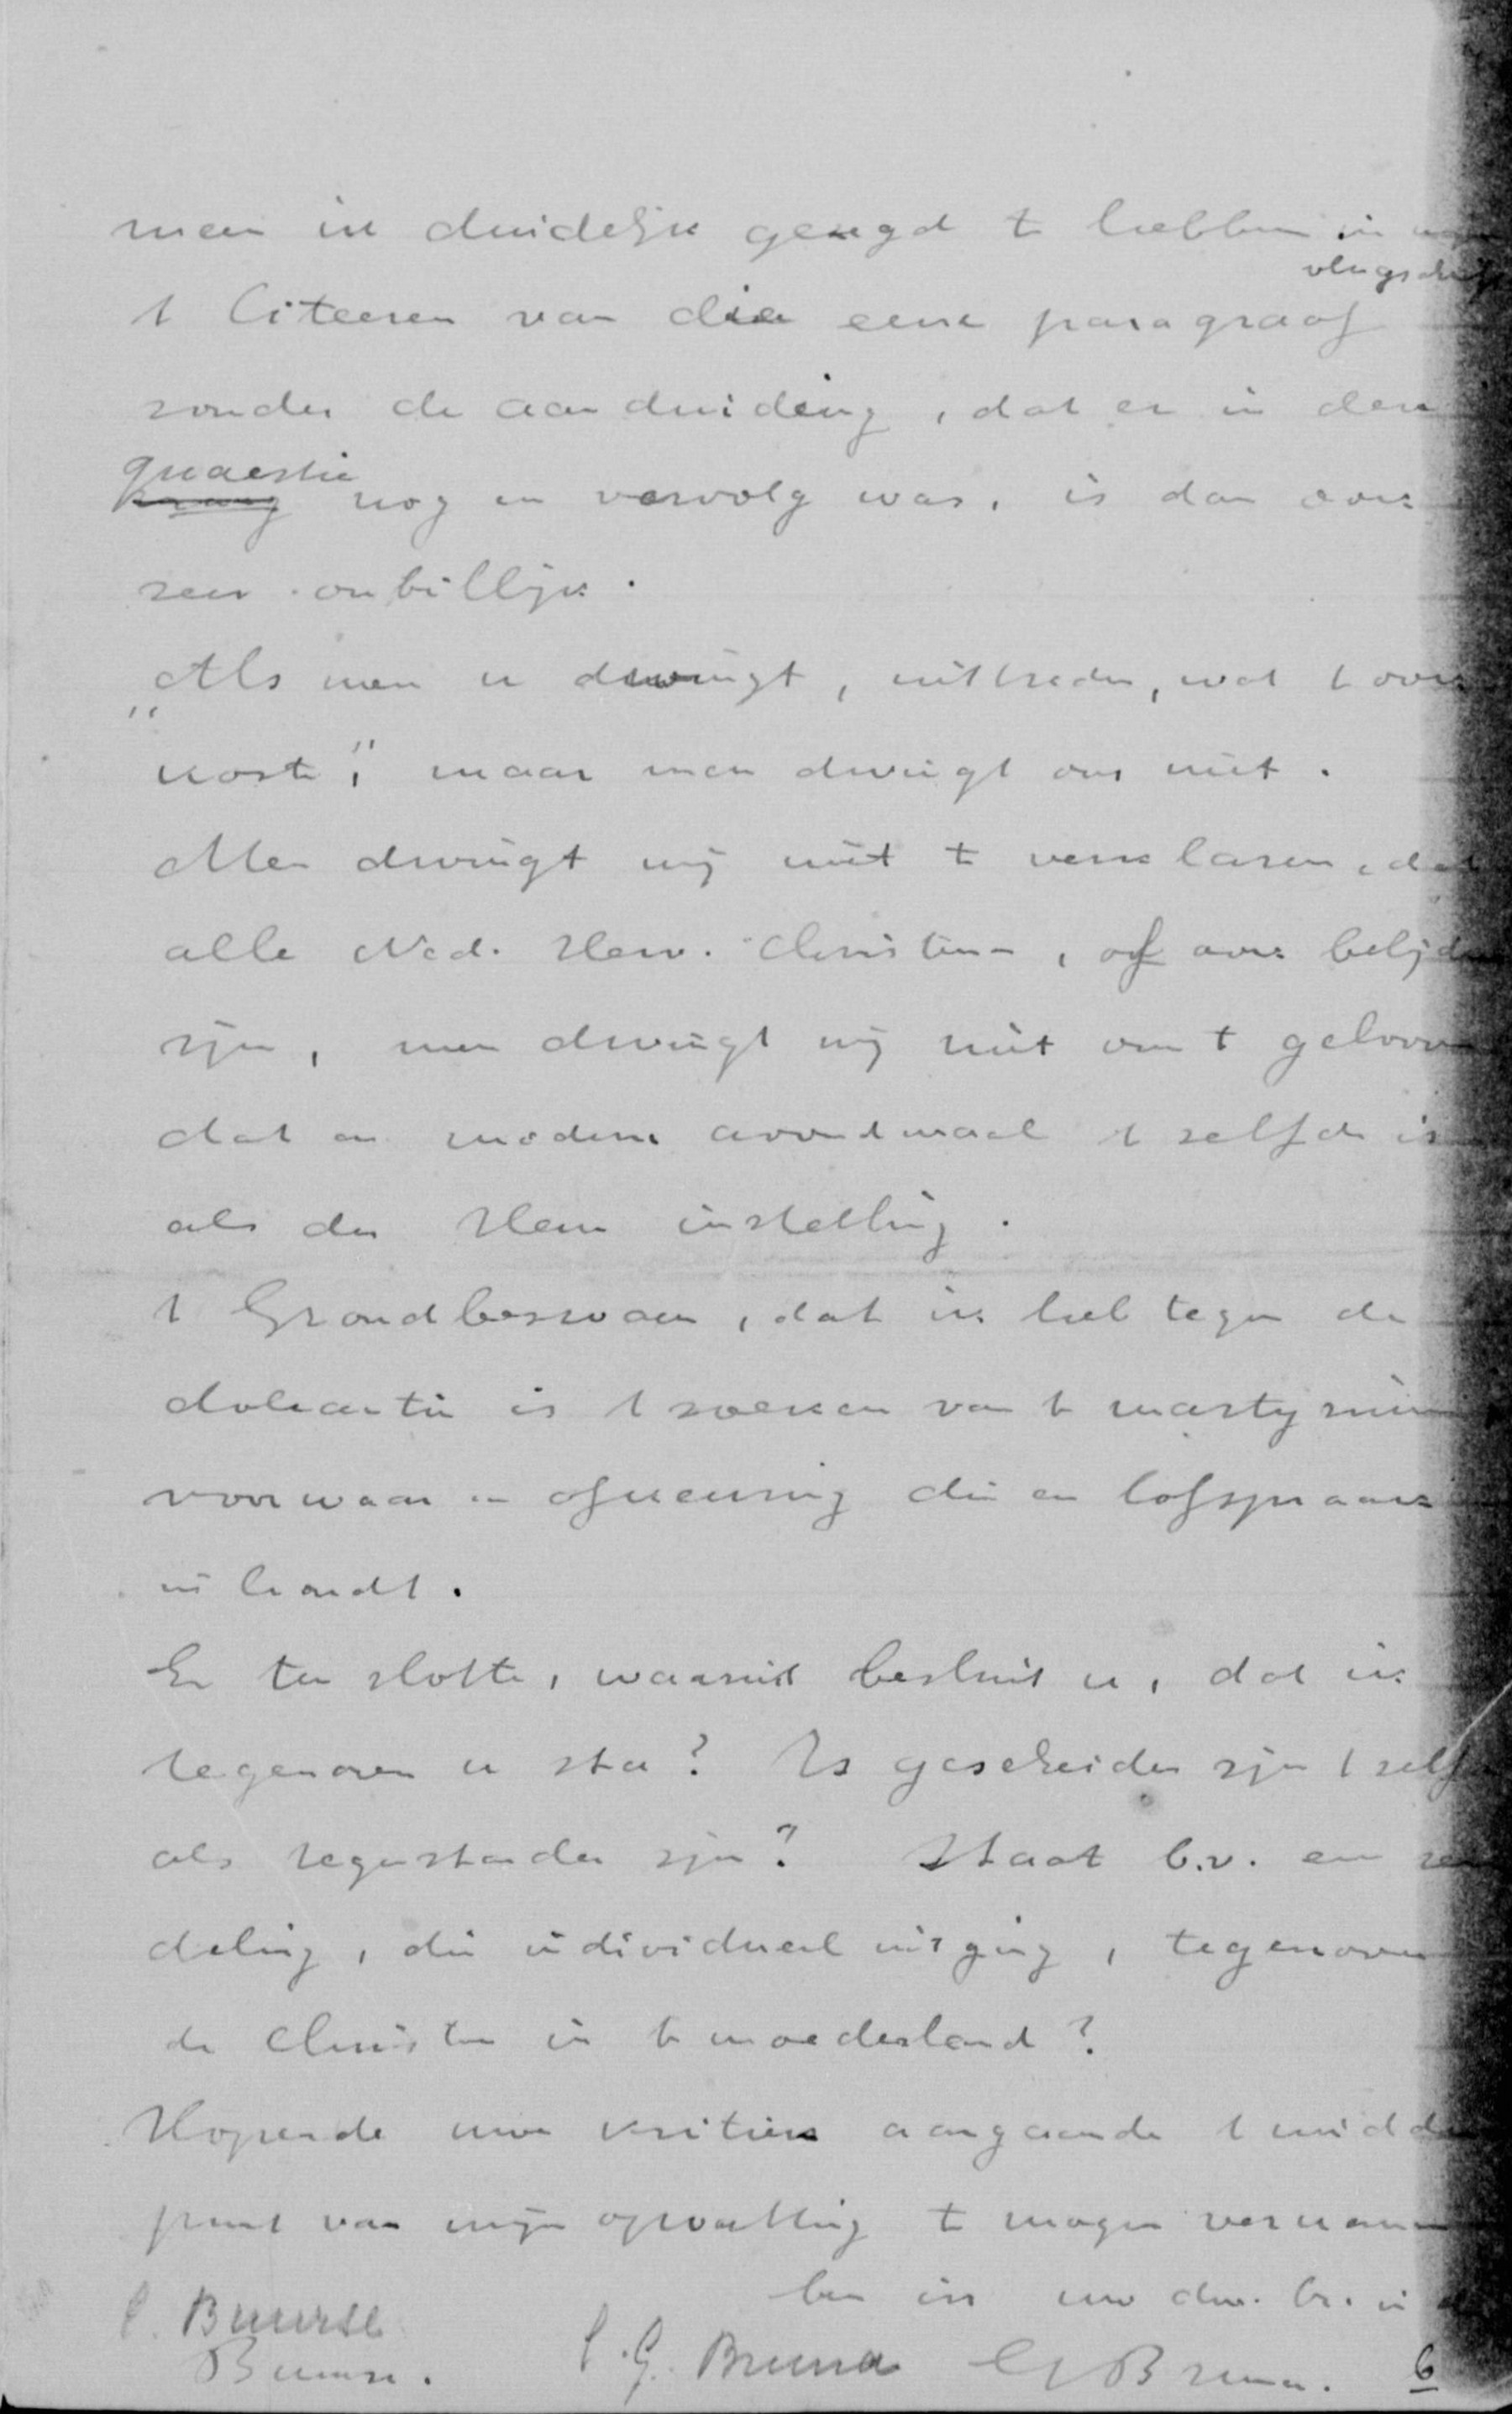 meen ik duidelijk gezegd te hebben in uw
vlugschrift
't Citeeren van die eene paragraaf
zonder de aanduiding, dat er in deze
quaestie
vraag nog een vervolg was, is dan ook
zeer onbillijk.
„Als men u dwingt, uittreden, wat 't ook
koste", maar men dwingt ons niet.
Men dwingt mij niet te verklaren, dat
alle Ned. Herv. Christen-, of ook belijders
zijn, men dwingt mij niet om te gelooven
dat een modern avondmaal 't zelfde is
als des Heeren instelling.
't Grondbezwaar, dat ik heb tegen de
doleantie is 't zoeken van 't martyrium
voorwaar een afkeuring die een lofspraak
inhoudt.
En ten slotte, waaruit besluit u, dat ik
tegenover u sta? Is gescheiden zijn 't zelfde
als tegenstander zijn? Staat b.v. een zen
deling, die individueel uitging, tegenover
de Christen in 't moederland?
Hopende uw kritiek aangaande 't midden
punt van mijn opvatting te mogen vernemen
ben ik uw dw. br. in
C. G. Bruna G Bruna.
6